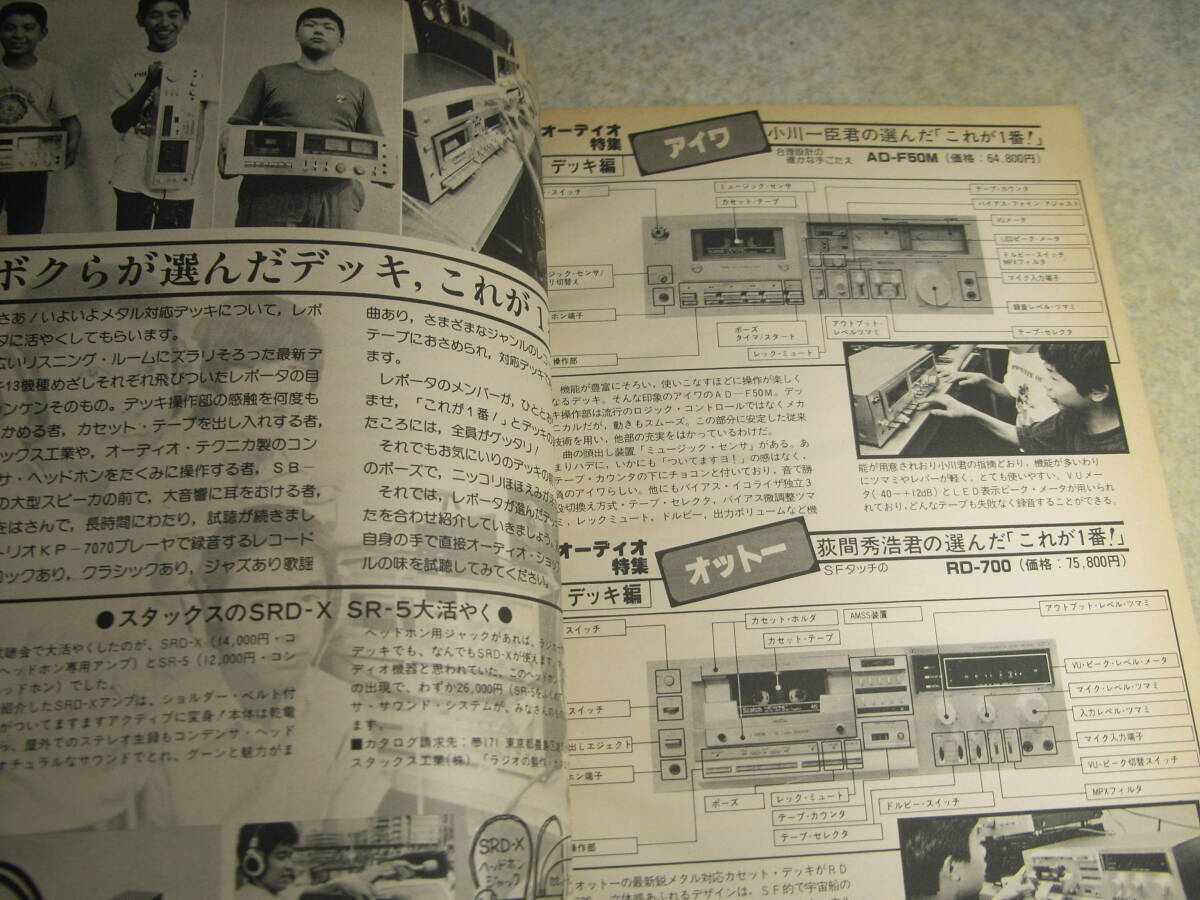 ボクらが選んだデッキ，これが1
さあ！いよいよメタル対応デッキについて，レポ
タに活やくしてもらいます。
広いリスニング・ルームにズラリそろった最新デ
キ13機種めざしそれぞれ飛びついたレポータの目
ンケンそのもの。デッキ操作部の感触を何度も
かめる者，カセット・テープを出し入れする者，
ックス工業や，オーディオ・テクニカ製のコン
サ・ヘッドホンをたくみに操作する者，SB－
の大型スピーカの前で，大音響に耳をむける者，
をはさんで，長時間にわたり，試聴が続きまし
トリオKP－7070プレーヤで録音するレコード
ロックあり，クラシックあり，ジャズあり歌謡
曲あり，さまざまなジャンルのレコ
テープにおさめられ，対応デッキで
ます。
レポータのメンバーが，ひととお
ませ，「これが1番！」とデッキの
たころには，全員がグッタリ！
それでもお気にいりのデッキの前
のポーズで，ニッコリほほえみが
それでは，レポータが選んだデッ
たを合わせ紹介していきましょう。
自身の手で直接オーディオ・ショッ
ルの味を試聴してみてください。
●スタックスのSRD-X SR-5大活やく●
試聴会で大活やくしたのが，SRD-X（14,000円・コ
ヘッドホン専用アンプ）とSR-5（12,000円・コン
ッドホン）でした。
紹介したSRD-Xアンプは，ショルダー・ベルト付
がついてますますアクティブに変身！本体は乾電
ら，屋外でのステレオ生録もコンデンサ・ヘッド
オチュラルなサウンドでとれ，グーンと魅力がま
ヘッドホン用ジャックがあれば，ラジカ
デッキでも，なんでもSRD-Xが使えます
ディオ機器と思われていた，このヘッドホン
の出現で，わずか26,000円（SR-5をふくめて
サ・サウンド・システムが，みなさんのも
ます。
■カタログ請求先：〠171 東京都豊島区
スタックス工業（株）「ラジオの製作・
SRD-X
ヘッドホン
ジャック
オーディオ
特集
デッキ編
アイワ
小川一臣君の選んだ「これが1番！」
合理設計の
確かな手ごたえ
AD-F50M（価格：64,800円）
・スイッチ
ミュージック・センサ
カセット・テープ
テープ・カウンタ
バイアス・ファイン・アジャスト
VUメータ
LEDピーク・メータ
ドルビー・スイッチ
MPXフィルタ
マイク入力端子
録音レベル・ツマミ
テープ・セレクタ
ジック・センサ/
リ切替え
ホン端子
操作部
ポーズ
タイマ/スタート
レック・ミュート
アウトプット・
レベルツマミ
機能が豊富にそろい，使いこなすほどに操作が楽しく
なるデッキ。そんな印象のアイワのAD－F50M。デッ
キ操作部は流行のロジック・コントロールではなくメカ
ニカルだが，動きもスムーズ。この部分に安定した従来
技術を用い，他部の充実をはかっているわけだ。
曲の頭出し装置「ミュージック・センサ」がある。あ
まりハデに，いかにも「ついてますヨ！」の感はなく，
テープ・カウンタの下にチョコンと付いており，音で勝
負のアイワらしい。他にもバイアス・イコライザ独立3
段切換え方式・テープ・セレクタ，バイアス微調整ツマ
ミ，レックミュート，ドルビー，出力ボリュームなど機
能が用意されおり小川君の指摘どおり，機能が多いわり
にツマミやレバーが軽く，とても使いやすい。VUメー
タ(-40～+12dB)とLED表示ピーク・メータが用いられ
れており，どんなテープも失敗なく録音することができる。
オーディオ
特集
デッキ編
オットー
荻間秀浩君の選んだ「これが1番！」
SFタッチの
RD-700（価格：75,800円）
スイッチ
カセット・ホルダ
カセット・テープ
AMSS装置
アウトプット・レベル・ツマミ
VU・ピーク・レベル・メータ
マイク・レベル・ツマミ
入力レベル・ツマミ
マイク入力端子
VU・ピーク切替スイッチ
MPXフィルタ
スイッチ
出しエジェクト
ホン端子
操作部
ポーズ
レック・ミュート
テープ・カウンタ
テープ・セレクタ
ドルビー・スイッチ
Scotch
オットーの最新鋭メタル対応カセット・デッキがRD
700。立体感あふれるデザインは，SF的で宇宙船の